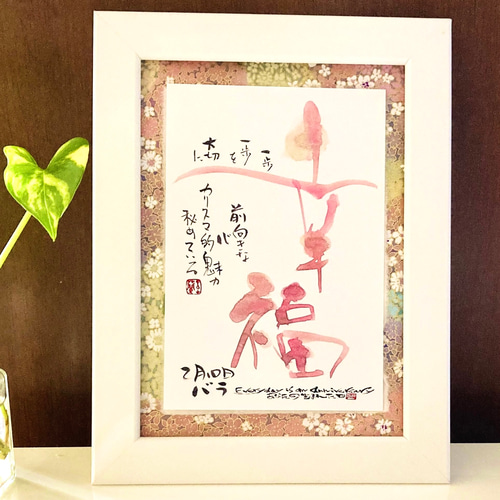 幸福
一歩
一歩を
大切に
前向きな
心
カリスマ的魅力
秘めている
2月四日
バラ
Everyday is an Anniversary